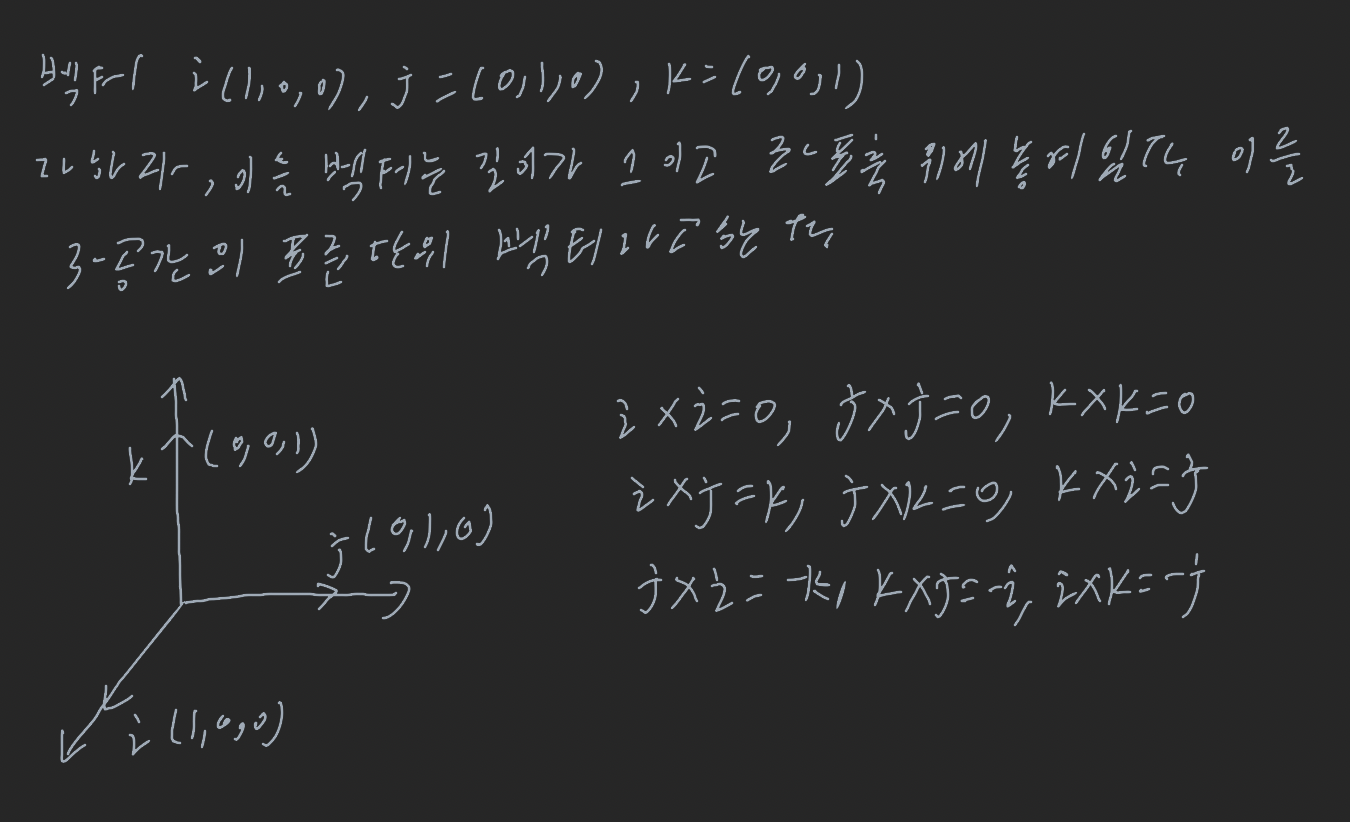 벡터 i(1,0,0), j=(0,1,0), k=(0,0,1)
라 하라, 이들 벡터는 길이가 1이고 좌표축 위에 놓여있다 이를
3-공간의 표준 단위 벡터라고 한다
k (0,0,1)
j (0,1,0)
i (1,0,0)
i×i=0, j×j=0, k×k=0
i×j=k, j×k=0, k×i=j
j×i=-k, k×j=-i, i×k=-j